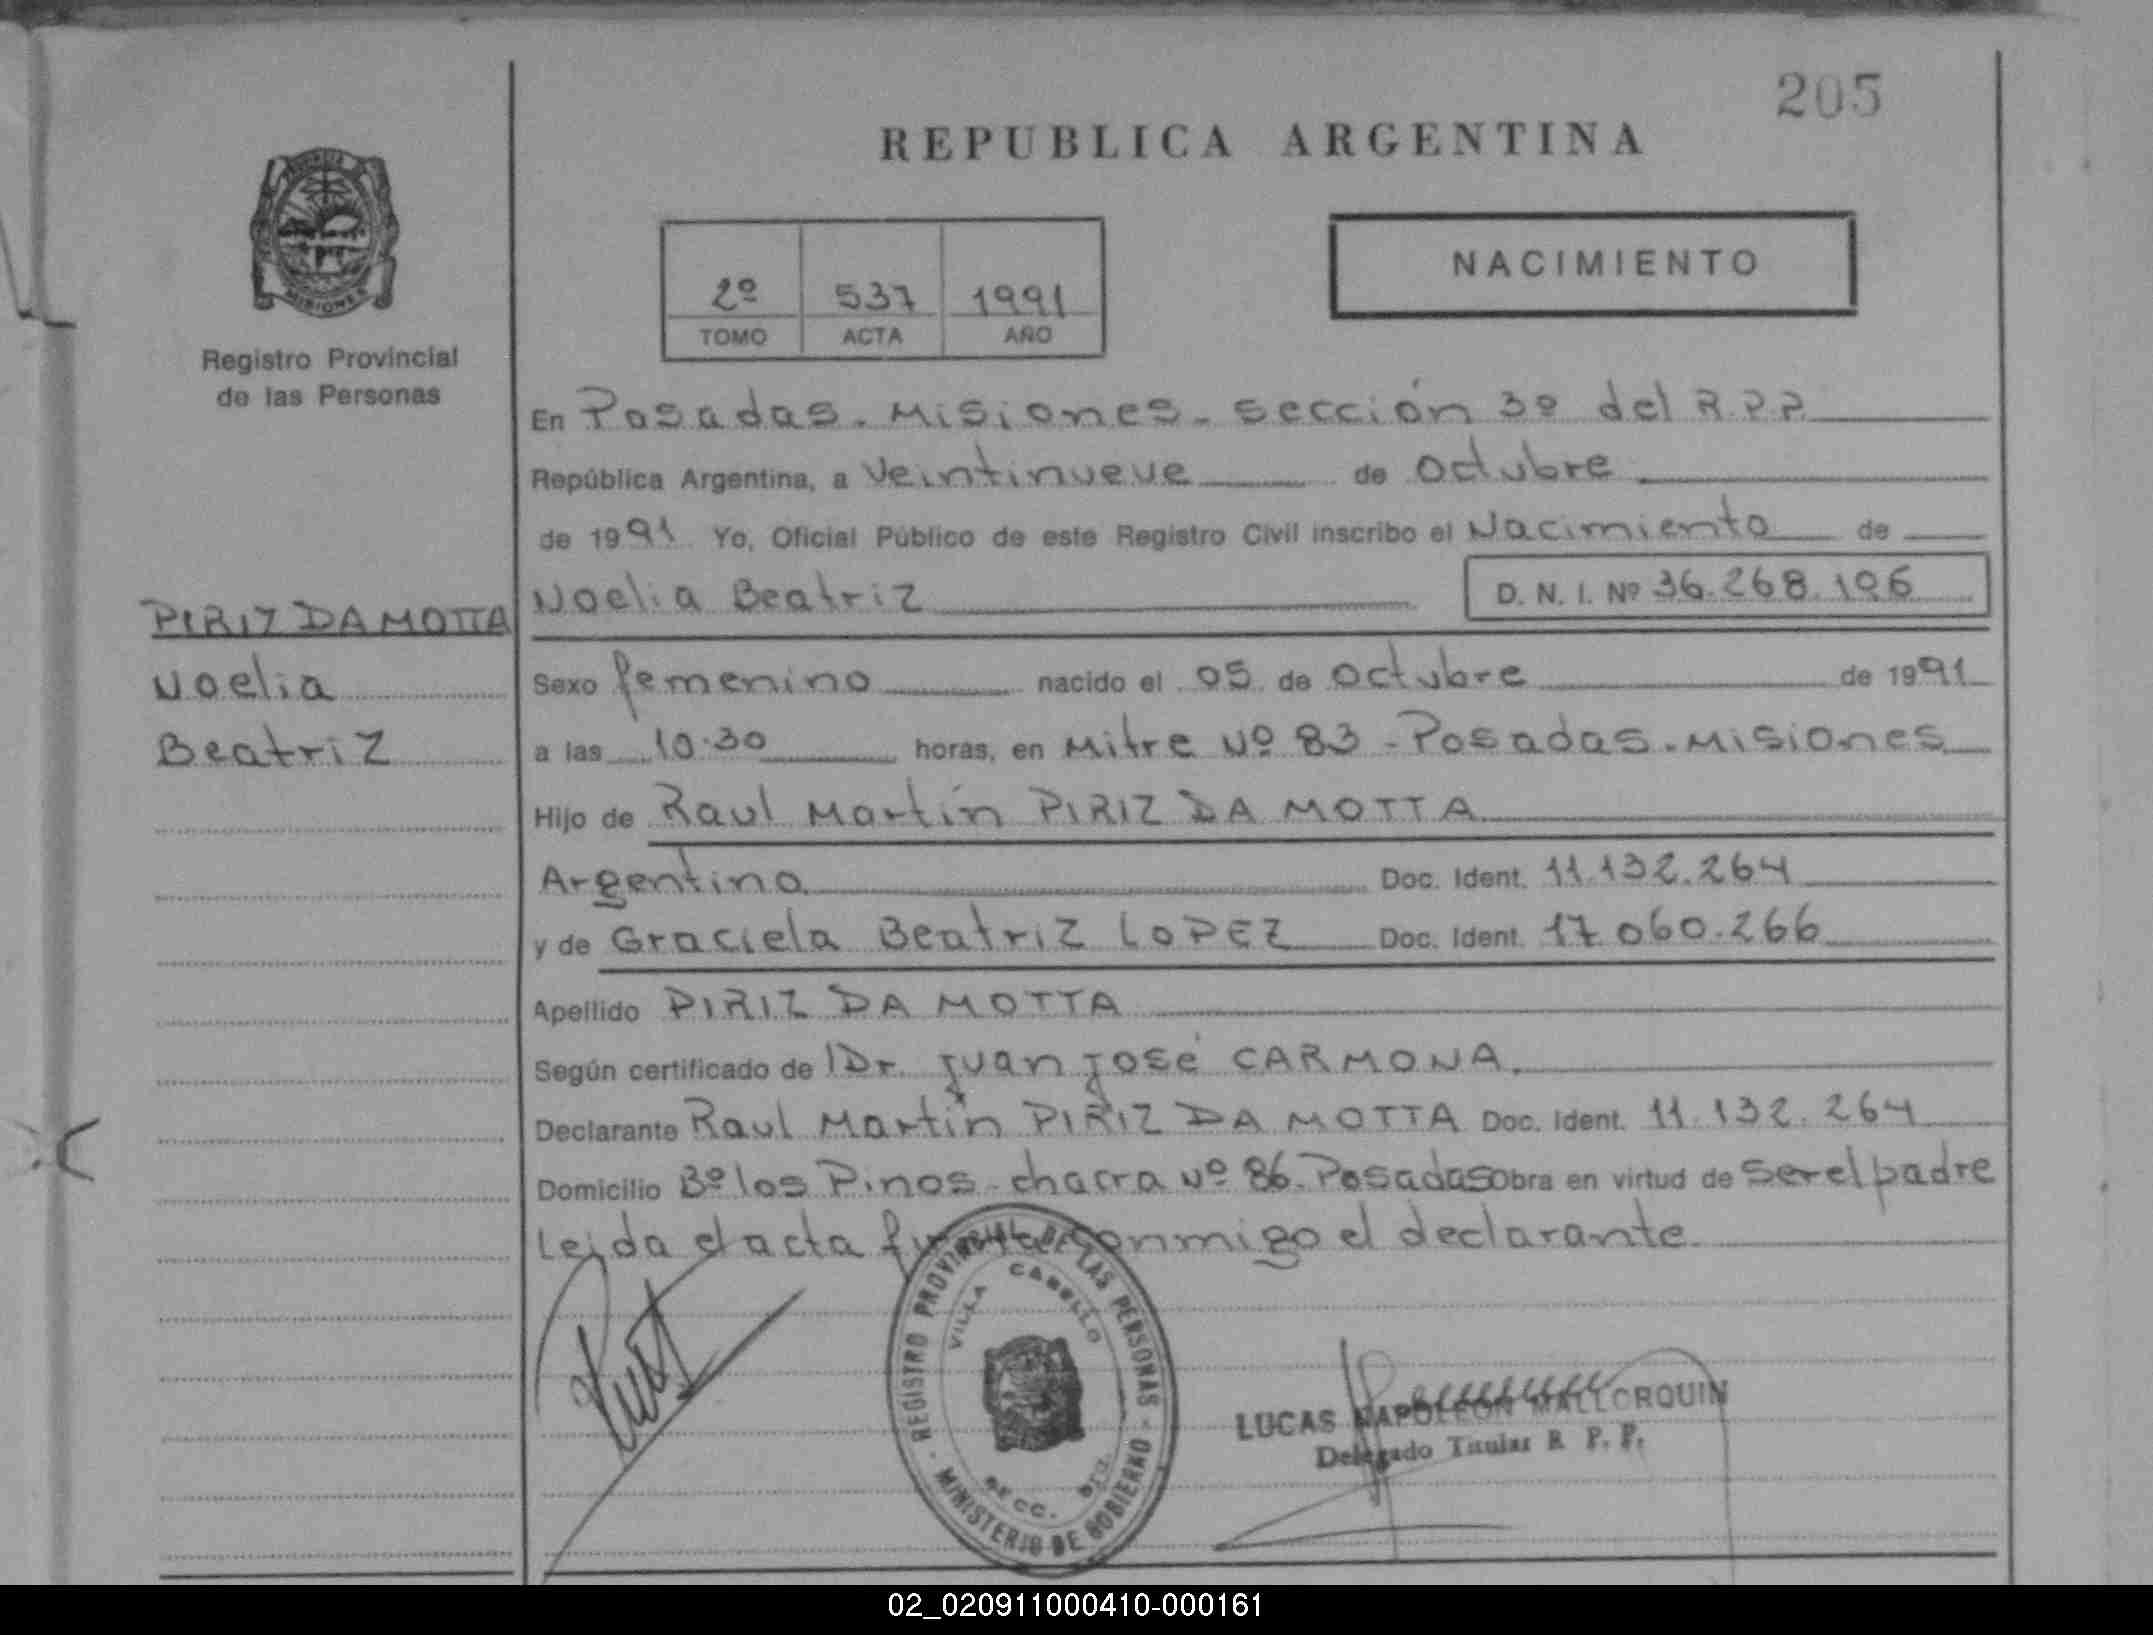 205
REPUBLICA ARGENTINA
MISIONES
Registro Provincial
de las Personas
NACIMIENTO
2º 537 1991
TOMO ACTA AÑO
En Posadas. Misiones. sección 3º del R.P.P.
República Argentina, a Veintinueve de Octubre
de 1991 Yo, Oficial Público de este Registro Civil inscribo el Nacimiento de
Noelia Beatriz D. N. I. Nº 36.268.196
PIRIZ DA MOTTA
Noelia
Beatriz
Sexo femenino nacido el 05 de Octubre de 1991
a las 10.30 horas, en Mitre Nº 83 - Posadas. Misiones
Hijo de Raul Martín PIRIZ DA MOTTA
Argentino Doc. Ident. 11.132.264
y de Graciela Beatriz LOPEZ Doc. Ident. 17.060.266
Apellido PIRIZ DA MOTTA
Según certificado de Dr. Juan José CARMONA.
Declarante Raul Martín PIRIZ DA MOTTA Doc. Ident. 11.132.264
Domicilio Bº los Pinos - chacra Nº 86. Posadas Obra en virtud de ser el padre
Leida el acta conmigo el declarante
REGISTRO PROVINCIAL DE LAS PERSONAS - MINISTERIO DE GOBIERNO -
VILLA CABELLO
SECC.
LUCAS NAPOLEON MALLORQUIN
Delegado Titular R. P. P.
02_020911000410-000161